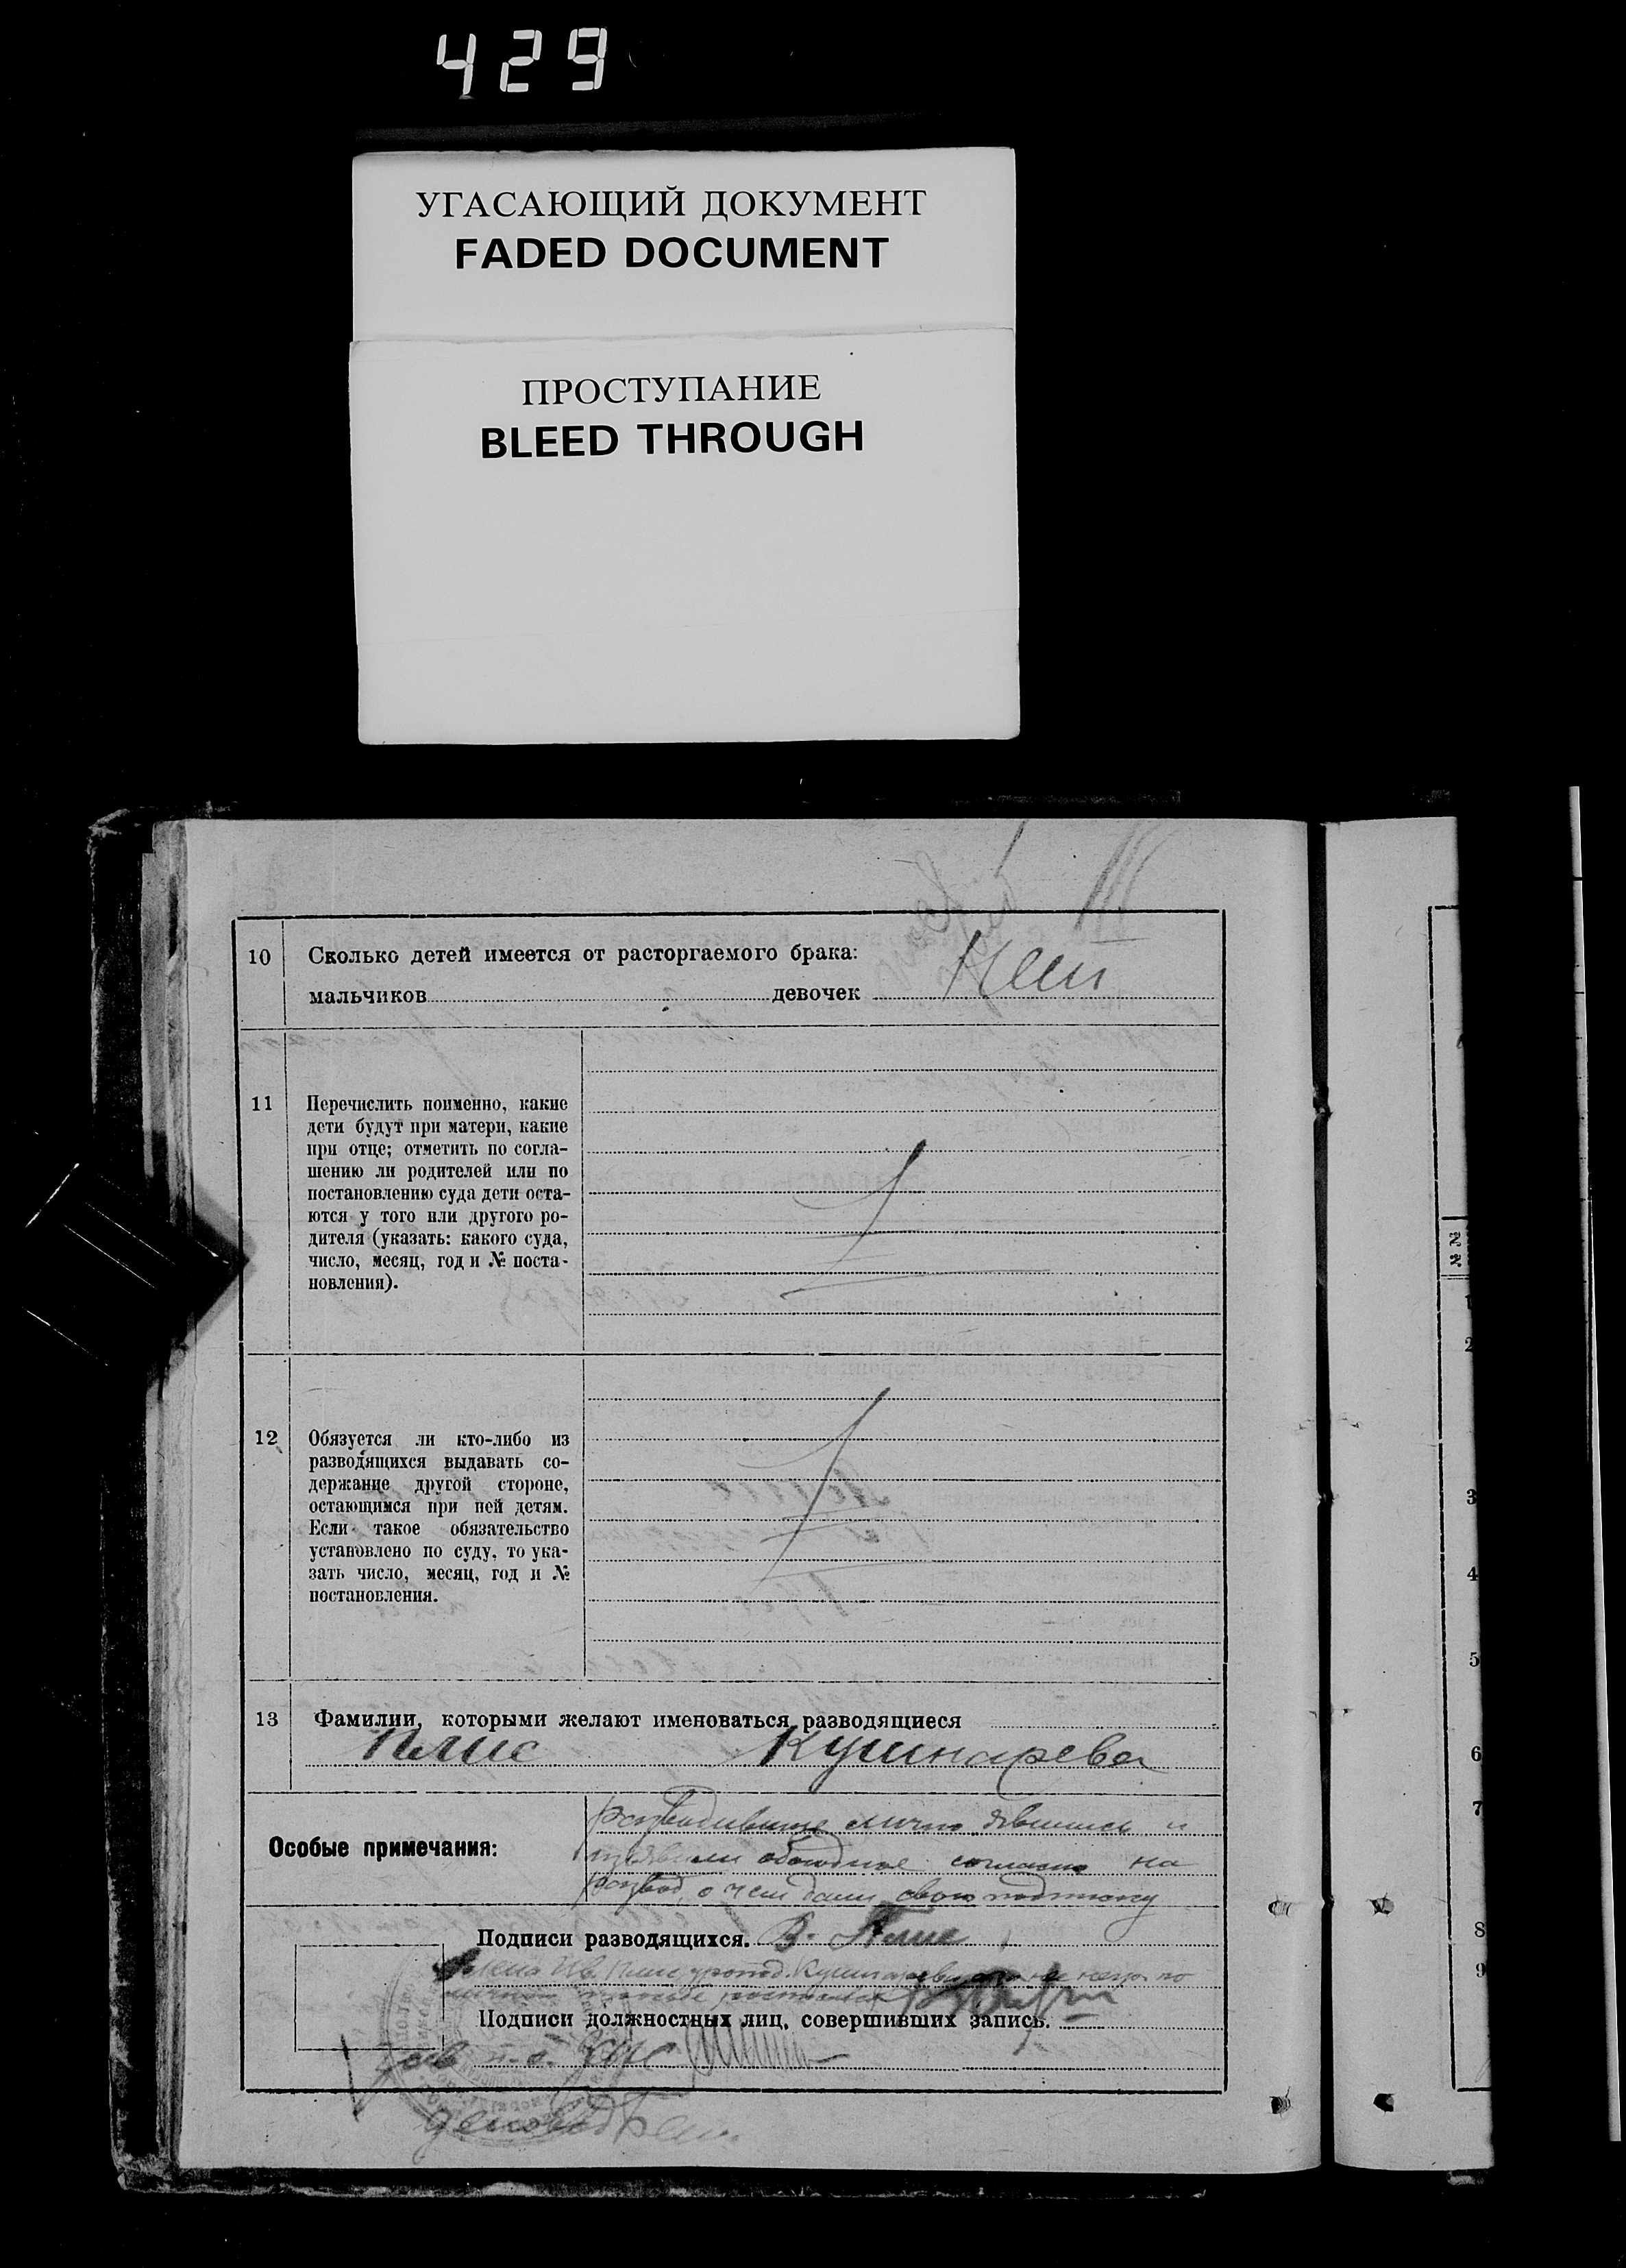 429
УГАСАЮЩИЙ ДОКУМЕНТ
FADED DOCUMENT
ПРОСТУПАНИЕ
BLEED THROUGH
10 Сколько детей имеется от расторгаемого брака:
мальчиков девочек Нет
11 Перечислить поименно, какие
дети будут при матери, какие
при отце; отметить по согла-
шению ли родителей или по
постановлению суда дети оста-
ются у того или другого ро-
дителя (указать: какого суда,
число, месяц, год и № поста-
новления).
12 Обязуется ли кто-либо из
разводящихся выдавать со-
держание другой стороне,
остающимся при ней детям.
Если такое обязательство
установлено по суду, то ука-
зать число, месяц, год и №
постановления.
13 Фамилии, которыми желают именоваться разводящиеся
Плис Кушнарева
Особые примечания:
лично явились и
изъявили обоюдное согласие на
развод о чем дали свою подписку
Подписи разводящихся. В. Плис
Ив. Плис урожд. Кушнарева
Подписи должностных лиц, совершивших запись.
№№
1
2
3
4
5
6
7
8
9